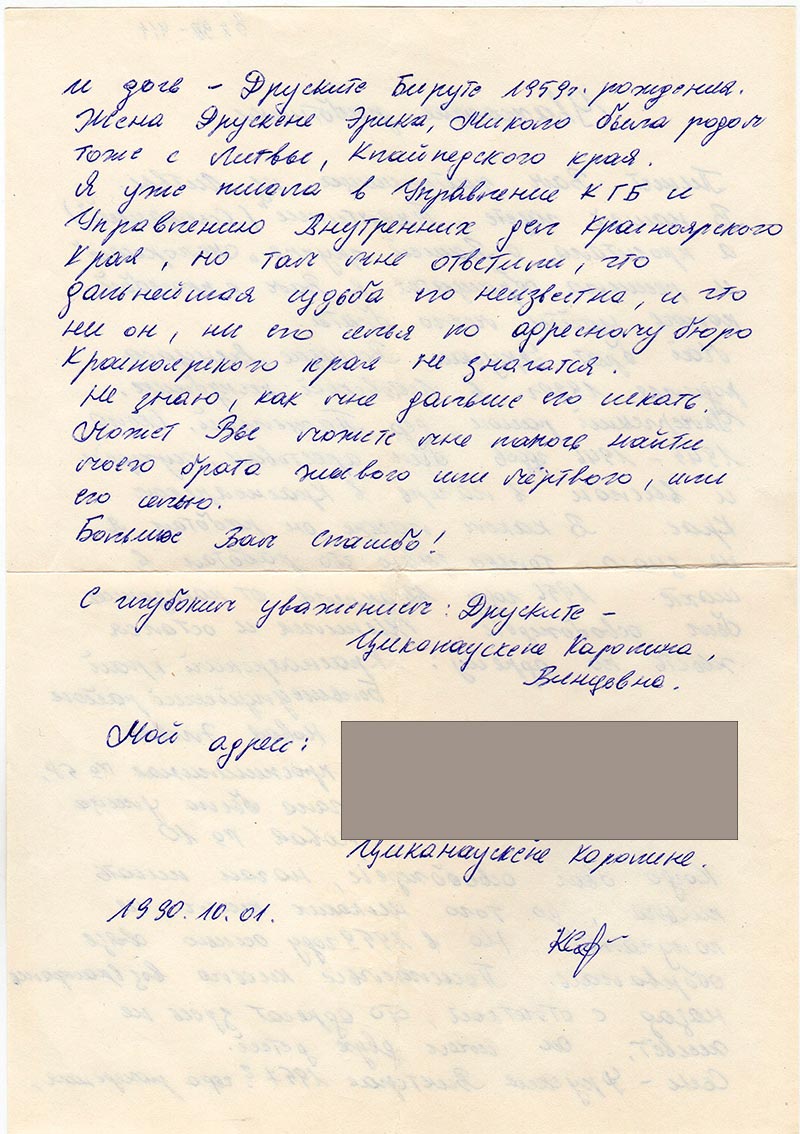 и дочь - Друските Бируте 1959г. рождения.
Жена Друскене Эрика, Микаго была родом
тоже с Литвы, Клайпедского края.
Я уже писала в Управление КГБ и
Управлению Внутренних дел Красноярского
Края, но там мне ответили, что
дальнейшая судьба его неизвестна, и что
ни он, ни его семья по адресному бюро
Красноярского края не значатся.
Не знаю, как мне дальше его искать.
Может Вы можете мне помочь найти
моего брата живого или мёртвого, или
его семью.
Большое Вам спасибо!
С глубоким уважением: Друските -
Циканаускене Каролина,
Винцевна.
Мой адрес:
Циканаускене Каролине.
1990.10.01.